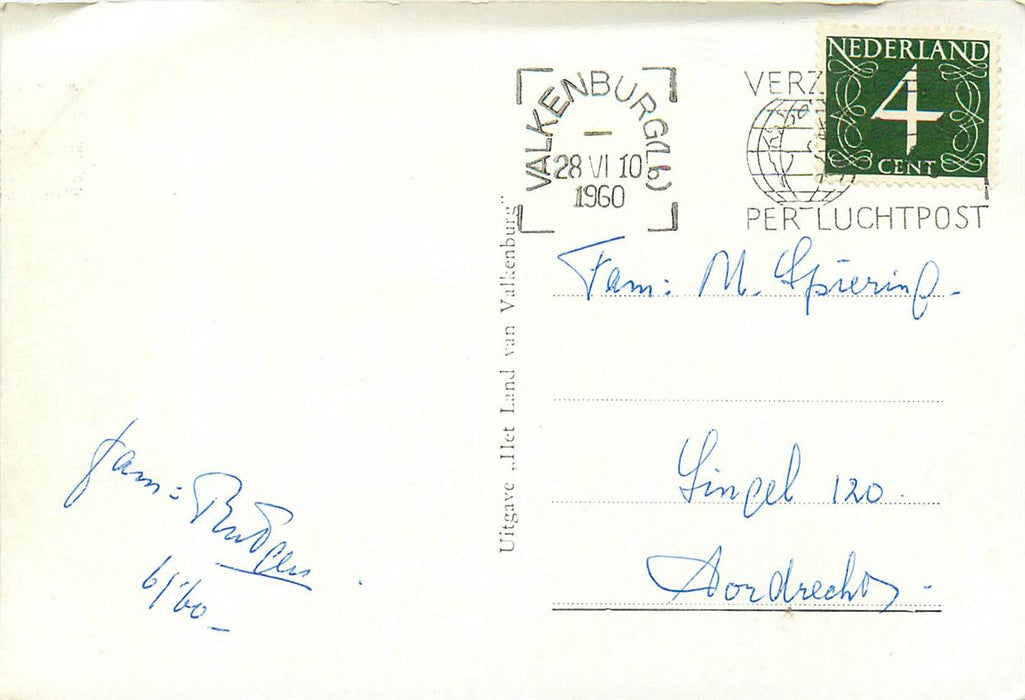 NEDERLAND
4
CENT
VALKENBURG(Lb)
28 VI 10
1960
VERZ
PER LUCHTPOST
Uitgave „Het Land van Valkenburg"
Fam: M. Spiering.
Singel 120.
Dordrecht.
fam: Rutgers
6/'60